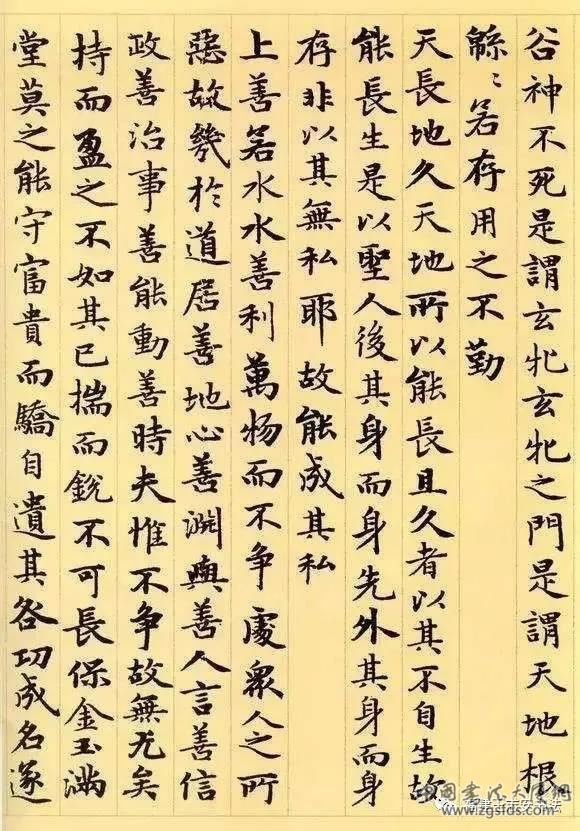 谷神不死是謂玄牝玄牝之門是謂天地根
緜〻若存用之不勤
天長地久天地所以能長且久者以其不自生故
能長生是以聖人後其身而身先外其身而身
存非以其無私耶故能成其私
上善若水水善利萬物而不争處衆人之所
惡故幾於道居善地心善淵與善人言善信
政善治事善能動善時夫惟不争故無尤矣
持而盈之不如其已揣而銳不可長保金玉滿
堂莫之能守富貴而驕自遺其咎功成名遂
中国書法大字網
www.zgsfds.com